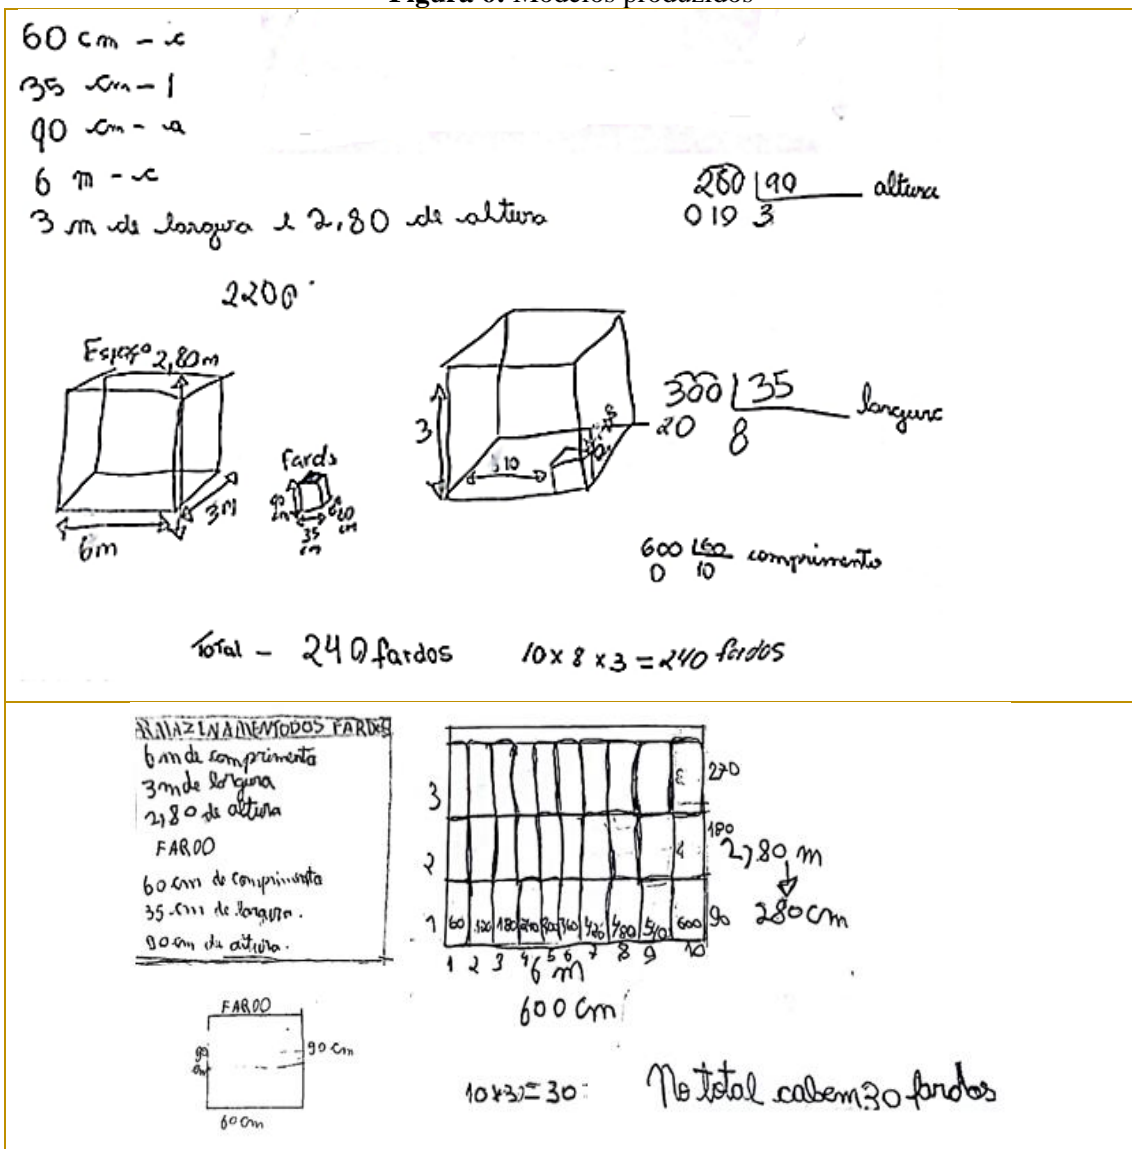 Figura 6: Modelos produzidos
60 cm - c
35 cm - l
90 cm - a
6 m - c
3 m de largura e 2,80 de altura
280 90 altura
019 3
2200
Espaço 2,80m
6m
3m
fardo
90 cm
35 cm
60 cm
3
10
8
300 35 largura
20 8
600 60 comprimento
0 10
Total - 240 fardos 10 x 8 x 3 = 240 fardos
ARMAZENAMENTO DOS FARDOS
6 m de comprimento
3 m de largura
2,80 de altura
FARDO
60 cm de comprimento
35 cm de largura.
90 cm de altura.
3 270
2 180
1 60 120 180 240 300 360 420 480 540 600 90
1 2 3 4 5 6 7 8 9 10
6 m
600 cm
2,80 m
280 cm
FARDO
90 cm
90 cm
60 cm
10x3=30 No total cabem 30 fardos